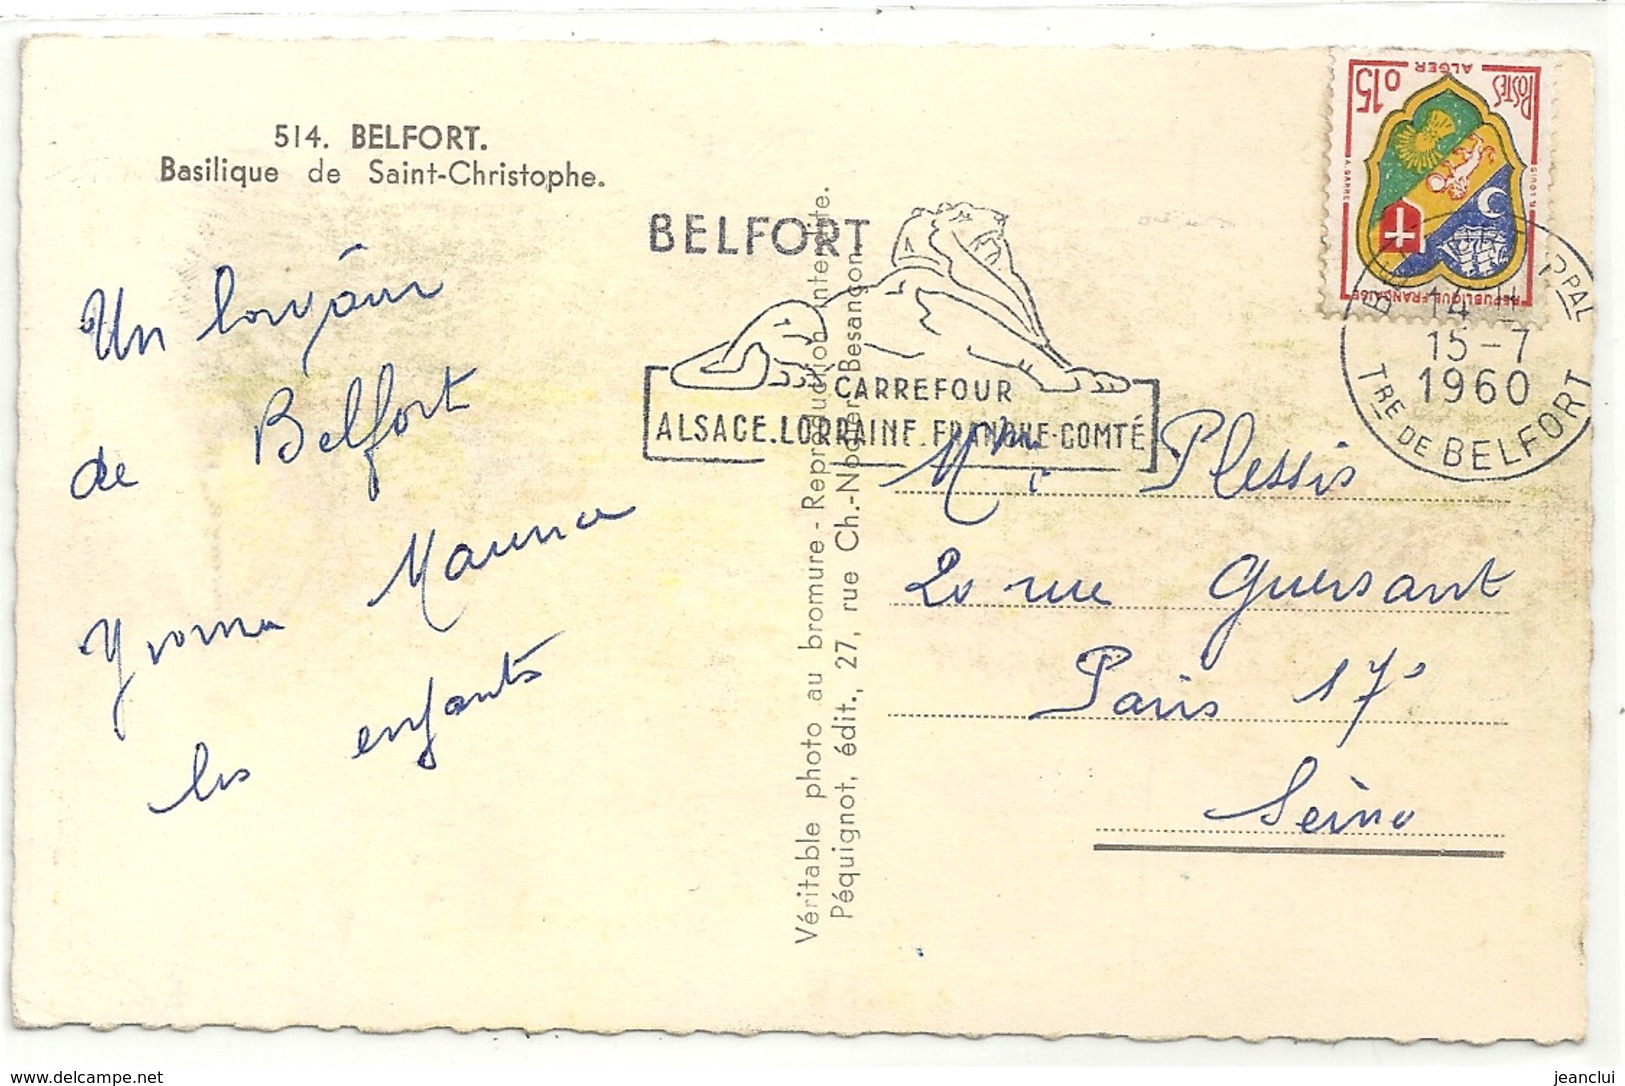 514. BELFORT.
Basilique de Saint-Christophe.
Un bonjour
de Belfort
Yvonne Maurice
les enfants
Véritable photo au bromure - Reproduction interdite.
Péquignot, édit., 27, rue Ch.-Nodier, Besançon.
BELFORT
CARREFOUR
ALSACE.LORRAINE.FRANCHE-COMTÉ
POSTES
0,15
ALGER
A. BARRE
R. LOUIS
REPUBLIQUE FRANÇAISE
PPAL
14 H
15-7
1960
TRE DE BELFORT
Mme Plessis
20 rue Guersant
Paris 17e
Seine
www.delcampe.net
jeanclui